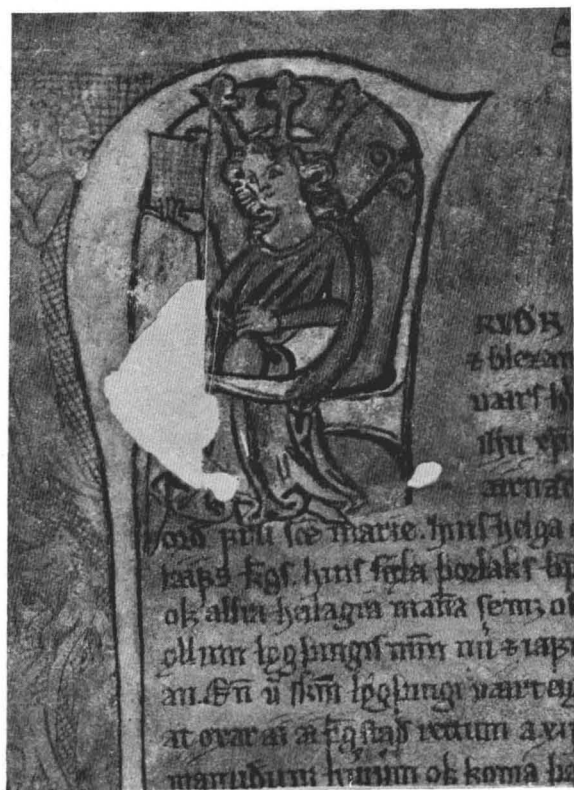 RIÐR
⁊ blezan
vars h
ihu xp
arnað
orð fru sce marie. hins helga o
laifs kgs. hins sæla þorlaks bp
ok allra hailagra mana se mz os
ollum lǫgþingis mm nu ⁊ iafn
an. En u skm lǫgþingi vart eig
at oxar ar þīgstað rettum a xii
manuðum huerium ok koma þa